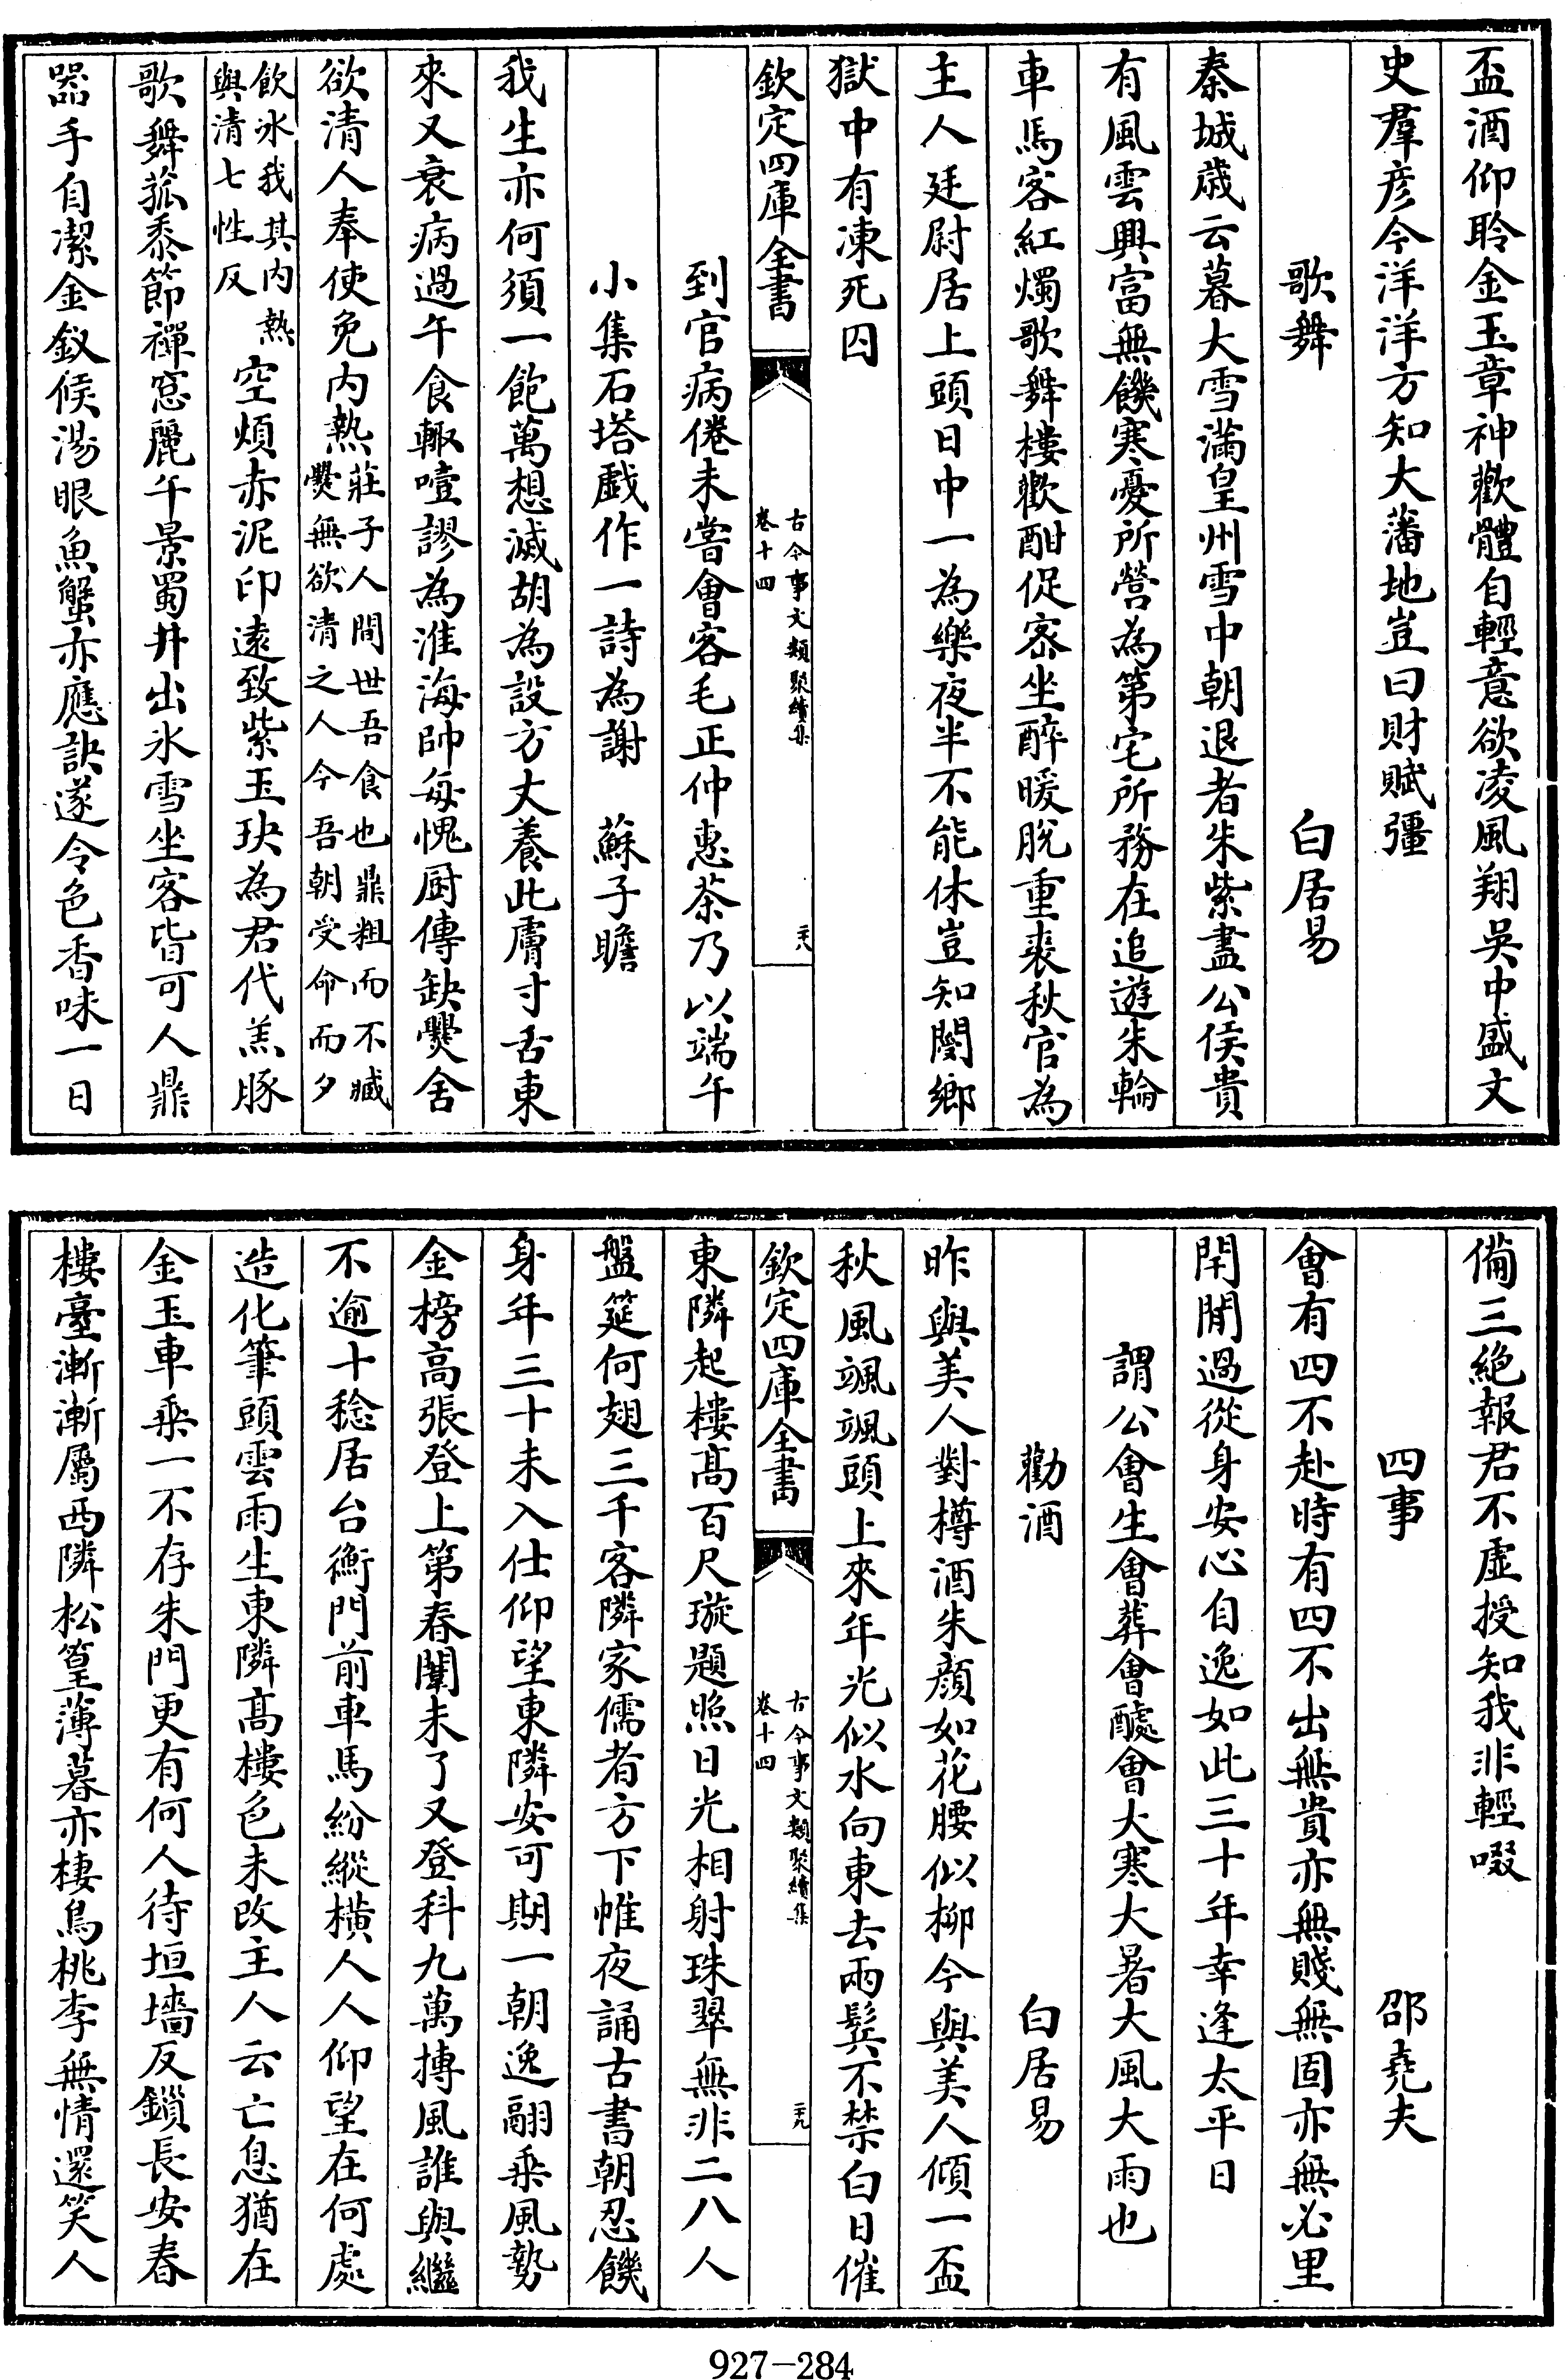 盃酒仰聆金玉章神歡體自輕意欲凌風翔吳中盛文
史羣彦今洋洋方知大藩地豈曰財賦彊
歌舞　白居易
秦城歳云暮大雪滿皇州雪中朝退者朱紫盡公侯貴
有風雲興富無饑寒憂所營為第宅所務在追遊朱輪
車馬客紅燭歌舞樓歡酣促宻坐醉暖脫重裘秋官為
主人廷尉居上頭日中一為樂夜半不能休豈知閿鄉
獄中有凍死囚
欽定四庫全書　古今事文類聚續集　卷十四　二十八
到官病倦未嘗會客毛正仲惠茶乃以端午
小集石塔戲作一詩為謝　蘇子瞻
我生亦何須一飽萬想滅胡為設方丈養此膚寸舌東
來又衰病過午食輙噎謬為淮海帥每愧厨傳缺爨舍
欲清人奉使免内熱莊子人間世吾食也鼎粗而不臧
爨無欲清之人今吾朝受命而夕
飲冰我其内熱
與清七性反
空煩赤泥印遠致紫玉玦為君代羔豚
歌舞菰黍節禪窓麗午景蜀井出冰雪坐客皆可人鼎
器手自潔金釵候湯眼魚蟹亦應訣遂令色香味一日
備三絶報君不虚授知我非輕啜
四事　邵堯夫
會有四不赴時有四不出無貴亦無賤無固亦無必里
閈閒過從身安心自逸如此三十年幸逢太平日
謂公會生會葬會醵會大寒大暑大風大雨也
勸酒　白居易
昨與美人對樽酒朱顔如花腰似柳今與美人傾一盃
秋風颯颯頭上來年光似水向東去兩鬓不禁白日催
欽定四庫全書　古今事文類聚續集　卷十四　二十九
東隣起樓髙百尺璇題照日光相射珠翠無非二八人
盤筵何翅三千客隣家儒者方下帷夜誦古書朝忍饑
身年三十未入仕仰望東隣安可期一朝逸翮乘風勢
金榜高張登上第春闈未了又登科九萬摶風誰與繼
不逾十稔居台衡門前車馬紛縱橫人人仰望在何處
造化筆頭雲雨生東隣髙樓色未改主人云亡息猶在
金玉車乘一不存朱門更有何人待垣墻反鎖長安春
樓臺漸漸屬西隣松篁薄暮亦棲鳥桃李無情還笑人
927-284